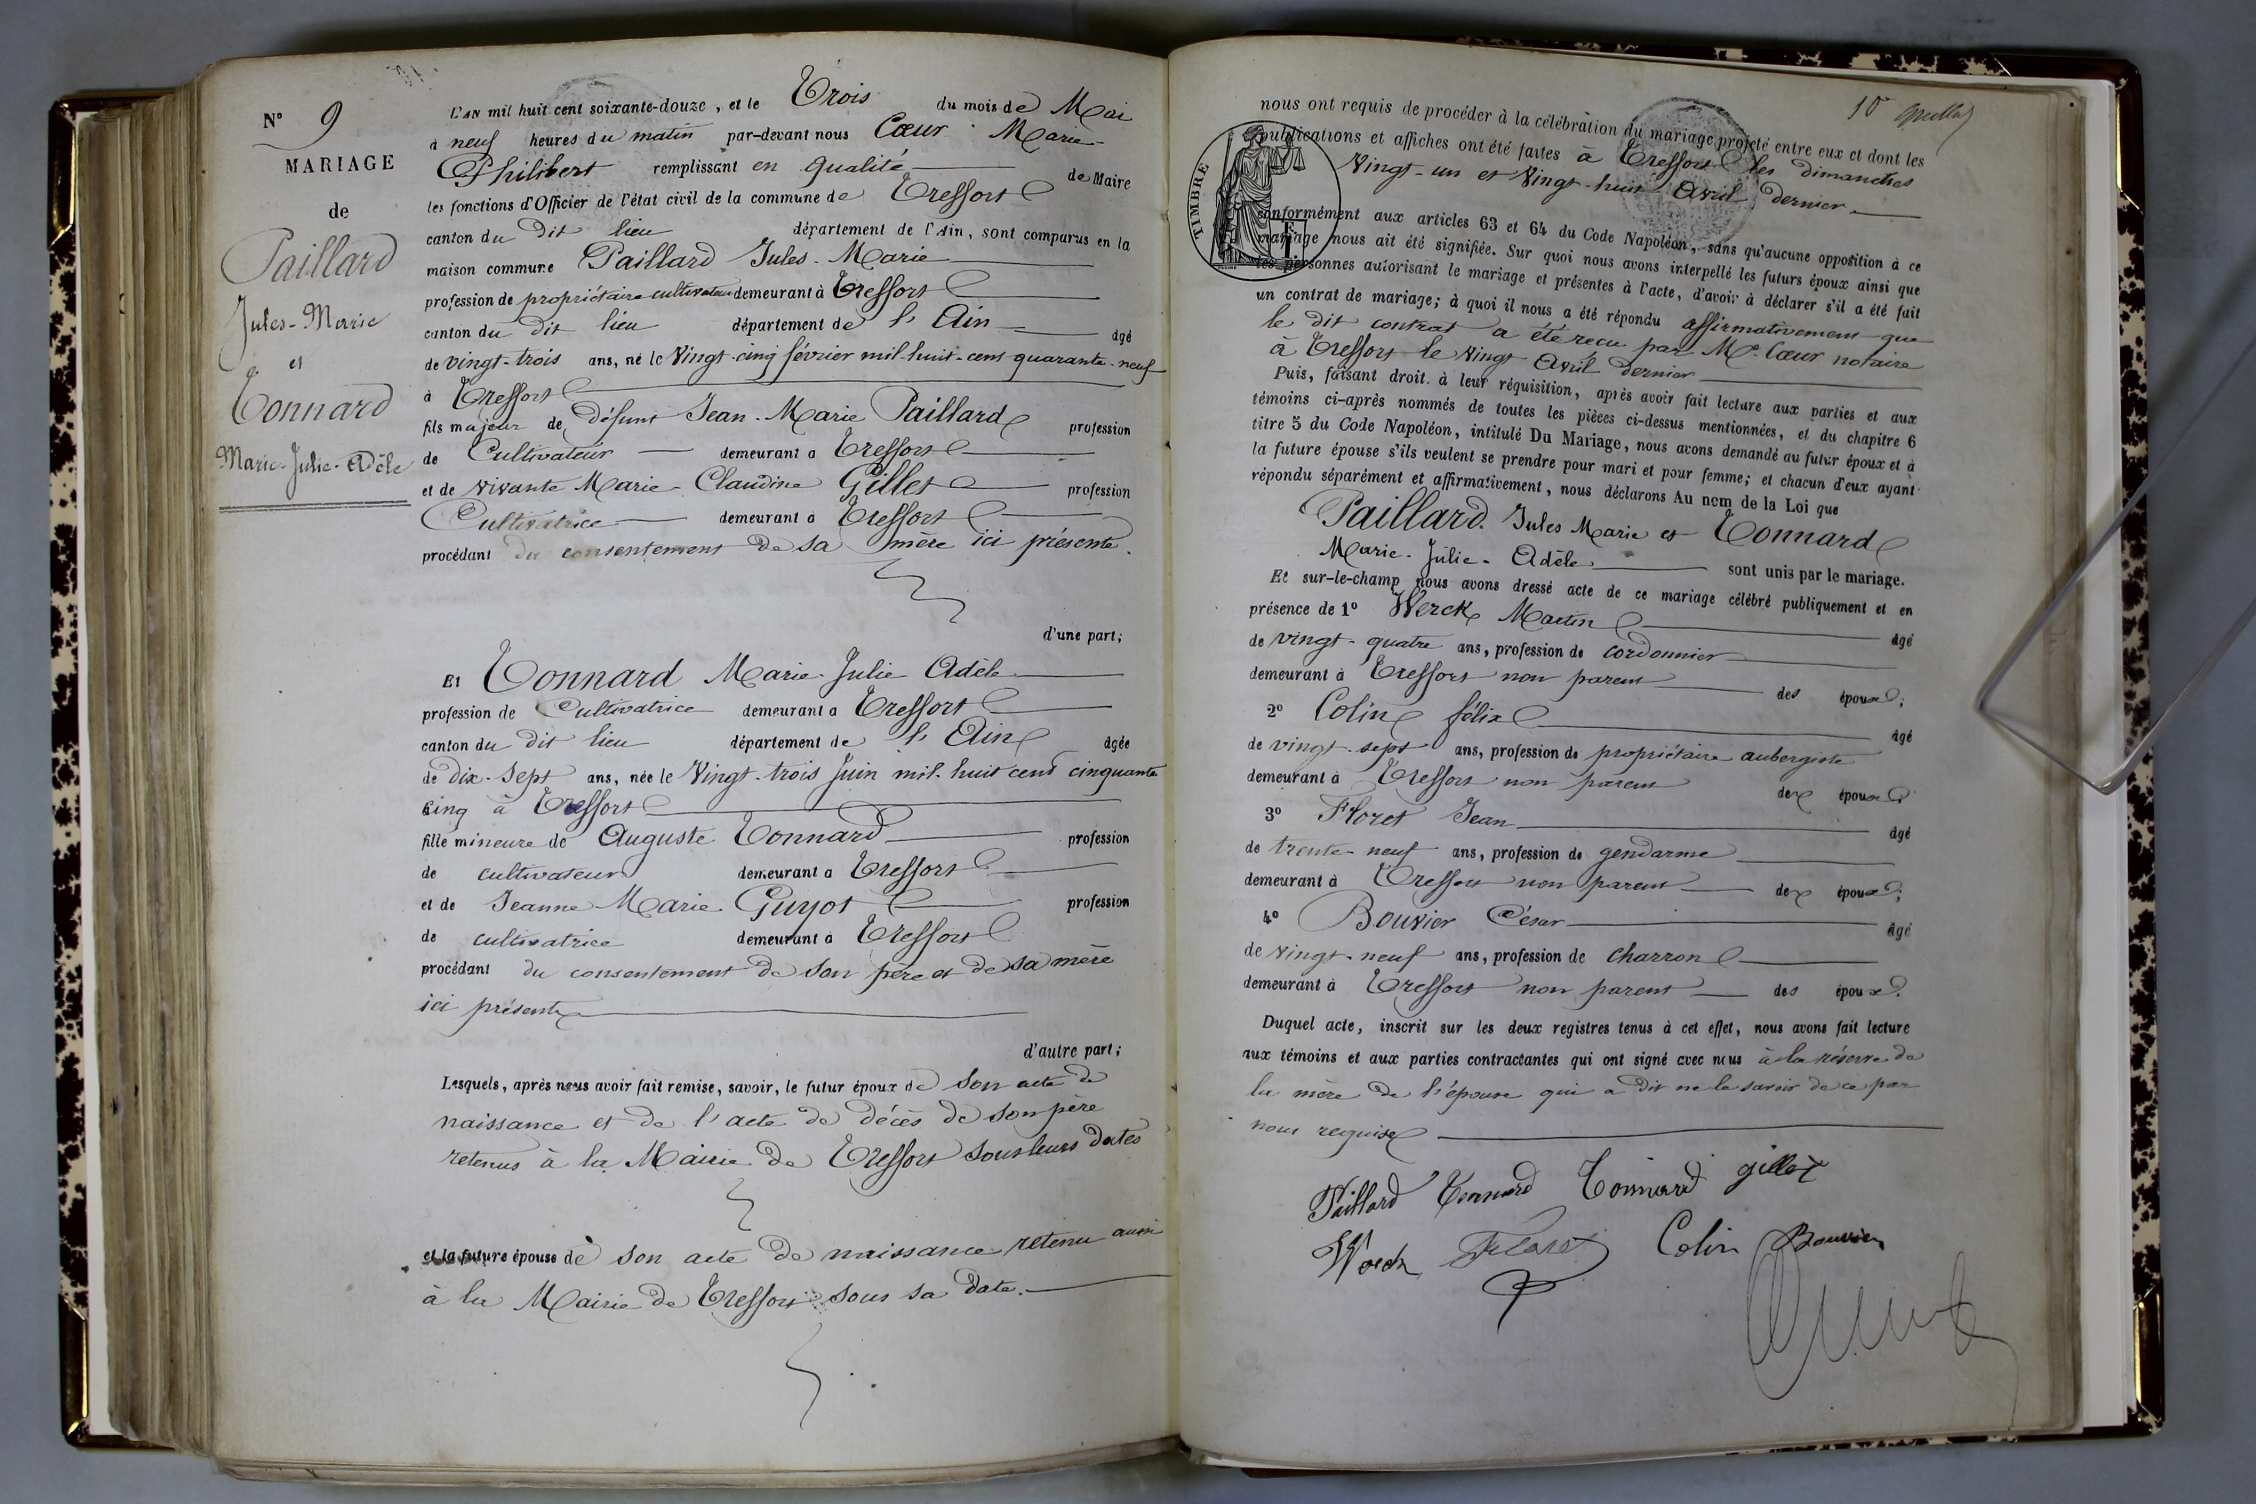 N° 9
MARIAGE
de
Paillard
Jules-Marie
et
Tonnard
Marie-Julie-Adèle
L'AN mil huit cent soixante-douze, et le Trois du mois de Mai
à neuf heures du matin par-devant nous Cœur Marie
Philibert remplissant en qualité de Maire
les fonctions d'Officier de l'état civil de la commune de Treffort
canton du dit lieu département de l'Ain, sont comparus en la
maison commune Paillard Jules-Marie
profession de propriétaire cultivateur demeurant à Treffort
canton du dit lieu département de l'Ain âgé
de vingt-trois ans, né le vingt-cinq février mil-huit-cent quarante-neuf
à Treffort
fils majeur de défunt Jean-Marie Paillard profession
de Cultivateur demeurant à Treffort
et de vivante Marie-Claudine Gillet profession
Cultivatrice demeurant à Treffort
procédant du consentement de sa mère ici présente.
d'une part;
Et Tonnard Marie-Julie Adèle
profession de Cultivatrice demeurant à Treffort
canton du dit lieu département de l'Ain âgée
de dix-sept ans, née le vingt-trois Juin mil-huit cent cinquante
cinq à Treffort
fille mineure de Auguste Tonnard profession
de cultivateur demeurant à Treffort
et de Jeanne-Marie Guyot profession
de cultivatrice demeurant à Treffort
procédant du consentement de son père et de sa mère
ici présents
d'autre part;
Lesquels, après nous avoir fait remise, savoir, le futur époux de son acte de
naissance et de l'acte de décès de son père
retenus à la Mairie de Treffort sous leurs dates
et la future épouse de son acte de naissance retenu aussi
à la Mairie de Treffort sous sa date.
10e
nous ont requis de procéder à la célébration du mariage projeté entre eux et dont les
publications et affiches ont été faites à Treffort les dimanches
vingt-un et vingt-huit Avril dernier
TIMBRE
conformément aux articles 63 et 64 du Code Napoléon, sans qu'aucune opposition à ce
mariage nous ait été signifiée. Sur quoi nous avons interpellé les futurs époux ainsi que
les personnes autorisant le mariage et présentes à l'acte, d'avoir à déclarer s'il a été fait
un contrat de mariage; à quoi il nous a été répondu affirmativement que
le dit contrat a été reçu par Me. Cœur notaire
à Treffort le vingt Avril dernier
Puis, faisant droit à leur réquisition, après avoir fait lecture aux parties et aux
témoins ci-après nommés de toutes les pièces ci-dessus mentionnées, et du chapitre 6
titre 5 du Code Napoléon, intitulé Du Mariage, nous avons demandé au futur époux et à
la future épouse s'ils veulent se prendre pour mari et pour femme; et chacun d'eux ayant
répondu séparément et affirmativement, nous déclarons Au nom de la Loi que
Paillard Jules Marie et Tonnard
Marie-Julie-Adèle sont unis par le mariage.
Et sur-le-champ nous avons dressé acte de ce mariage célébré publiquement et en
présence de 1° Werck Martin âgé
de vingt-quatre ans, profession de cordonnier
demeurant à Treffort non parent des époux;
2° Colin félix âgé
de vingt-sept ans, profession de propriétaire aubergiste
demeurant à Treffort non parent des époux;
3° Floret Jean âgé
de trente-neuf ans, profession de gendarme
demeurant à Treffort non parent des époux;
4° Bouvier César âgé
de vingt-neuf ans, profession de charron
demeurant à Treffort non parent des époux.
Duquel acte, inscrit sur les deux registres tenus à cet effet, nous avons fait lecture
aux témoins et aux parties contractantes qui ont signé avec nous à la réserve de
la mère de l'épouse qui a dit ne le savoir de ce par
nous requise
Paillard Tonnard Tonnard gillet
Werck Floret Colin Bouvier